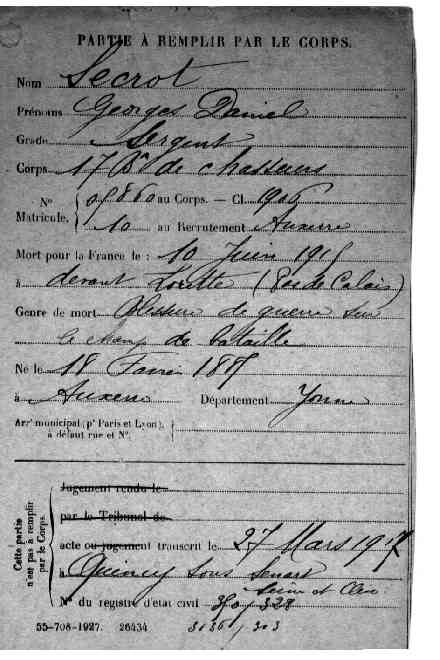 PARTIE À REMPLIR PAR LE CORPS.
Nom Secrot
Prénoms Georges Daniel
Grade Sergent
Corps 17 Bon de chasseurs
Nº Matricule. 05860 au Corps. — Cl. 1906
10 au Recrutement Auxerre
Mort pour la France le : 10 Juin 1915
à devant Lorette (Pas de Calais)
Genre de mort Blessure de guerre sur
le champ de bataille
Né le 18 1887
à Auxerre Département Yonne
Arrt municipal (pr Paris et Lyon),
à défaut rue et Nº.
Cette partie
n'est pas à remplir
par le Corps.
Jugement rendu le
par le Tribunal de
acte ou jugement transcrit le 27 Mars 1917
à Quincy sous Senart
Seine et Oise
Nº du registre d'état civil 320/328
55-708-1927. 26434 3136/303